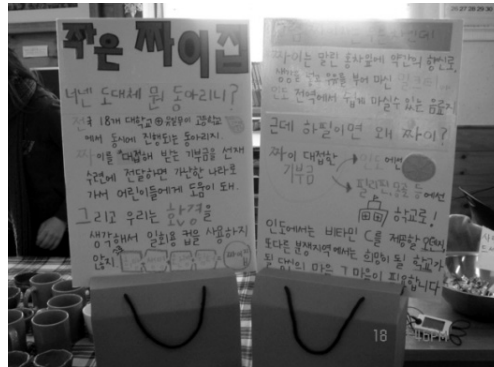 작은 짜이집
너넨 도대체 뭔 동아리니?
전국 18개 대학교 고등학교
에서 동시에 진행되는 동아리지.
짜이를 대접해 받는 기부금을 선재
수련에 전달하면 가난한 나라로
가서 어린이들에게 도움이 돼.
그리고 우리는 환경을
생각해서 일회용 컵을 사용하지
않지
짜이는 말린 홍차잎에 약간의 향신료,
생강을 넣고 우유를 부어 마신 밀크티
인도 전역에서 쉽게 마실 수 있는 음료지
근데 하필이면 왜 짜이?
짜이 대접한
기부금
인도에선
필리핀, 몽골 등에선
학교로!
인도에서는 비타민 C를 제공할
또 다른 분쟁지역에서는 희망이 될 학교가
될 당신의 마음 그 마음이 필요합니다
18 4:10PM